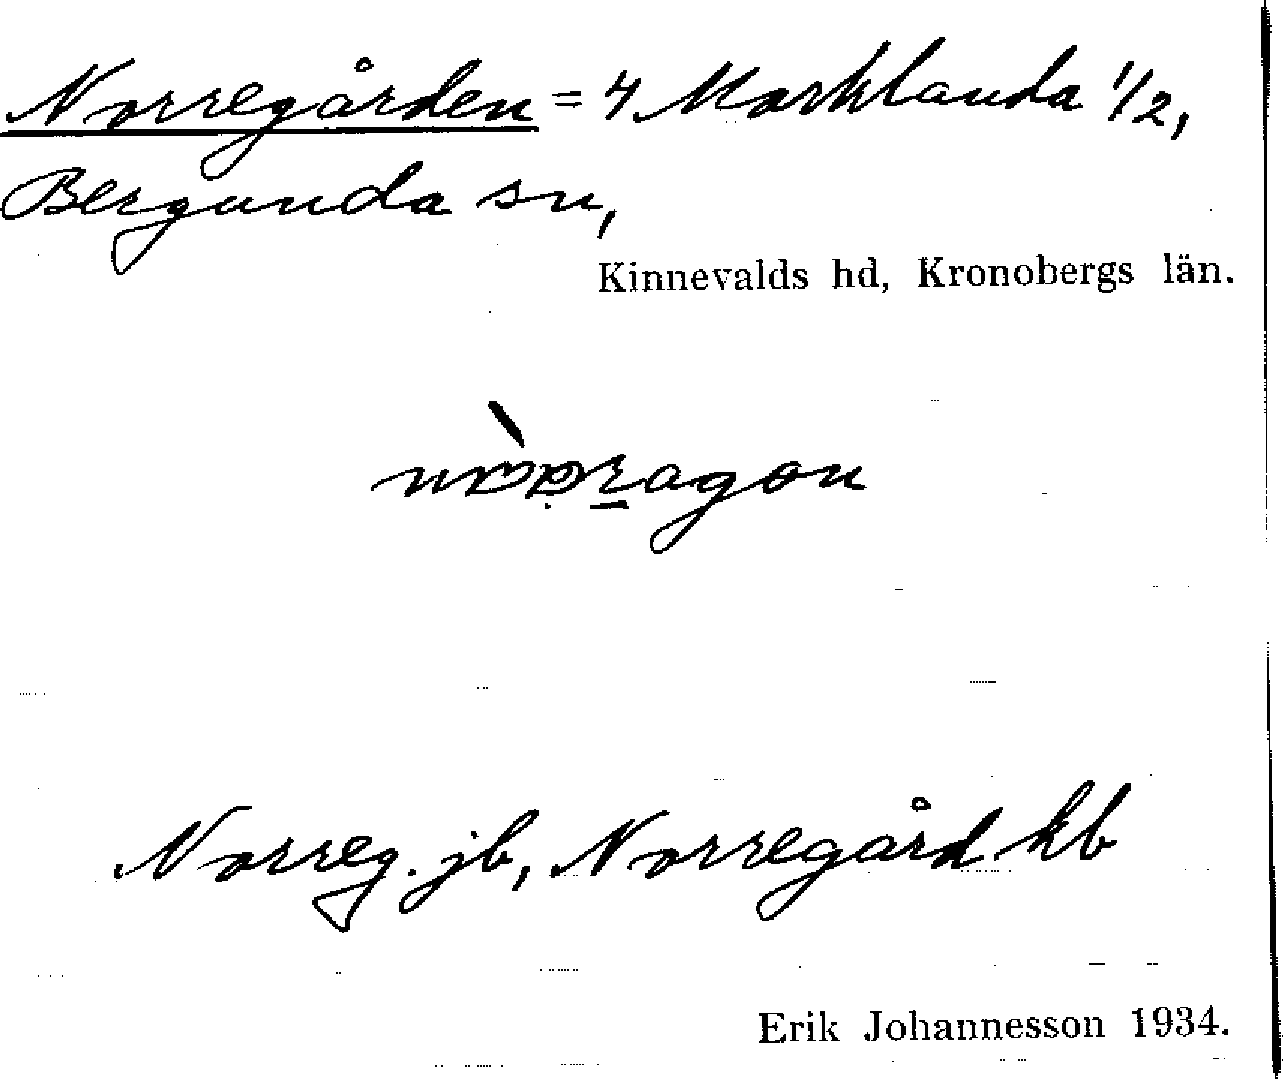 Norregården = 4 Marklanda 1/2,
Bergunda sn,
Kinnevalds hd, Kronobergs län.
Norreg. jb, Norregård kb
Erik Johannesson 1934.